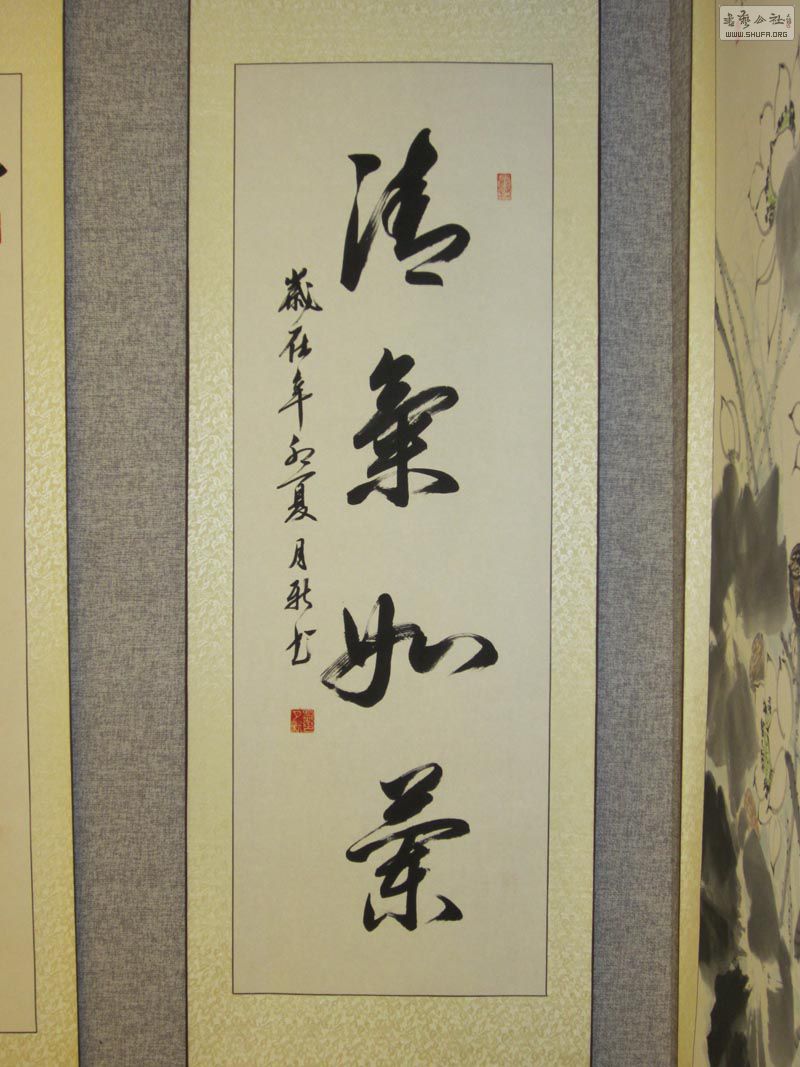 清氣如蘭
歲在辛卯夏月新书
書藝公社
WWW.SHUFA.ORG